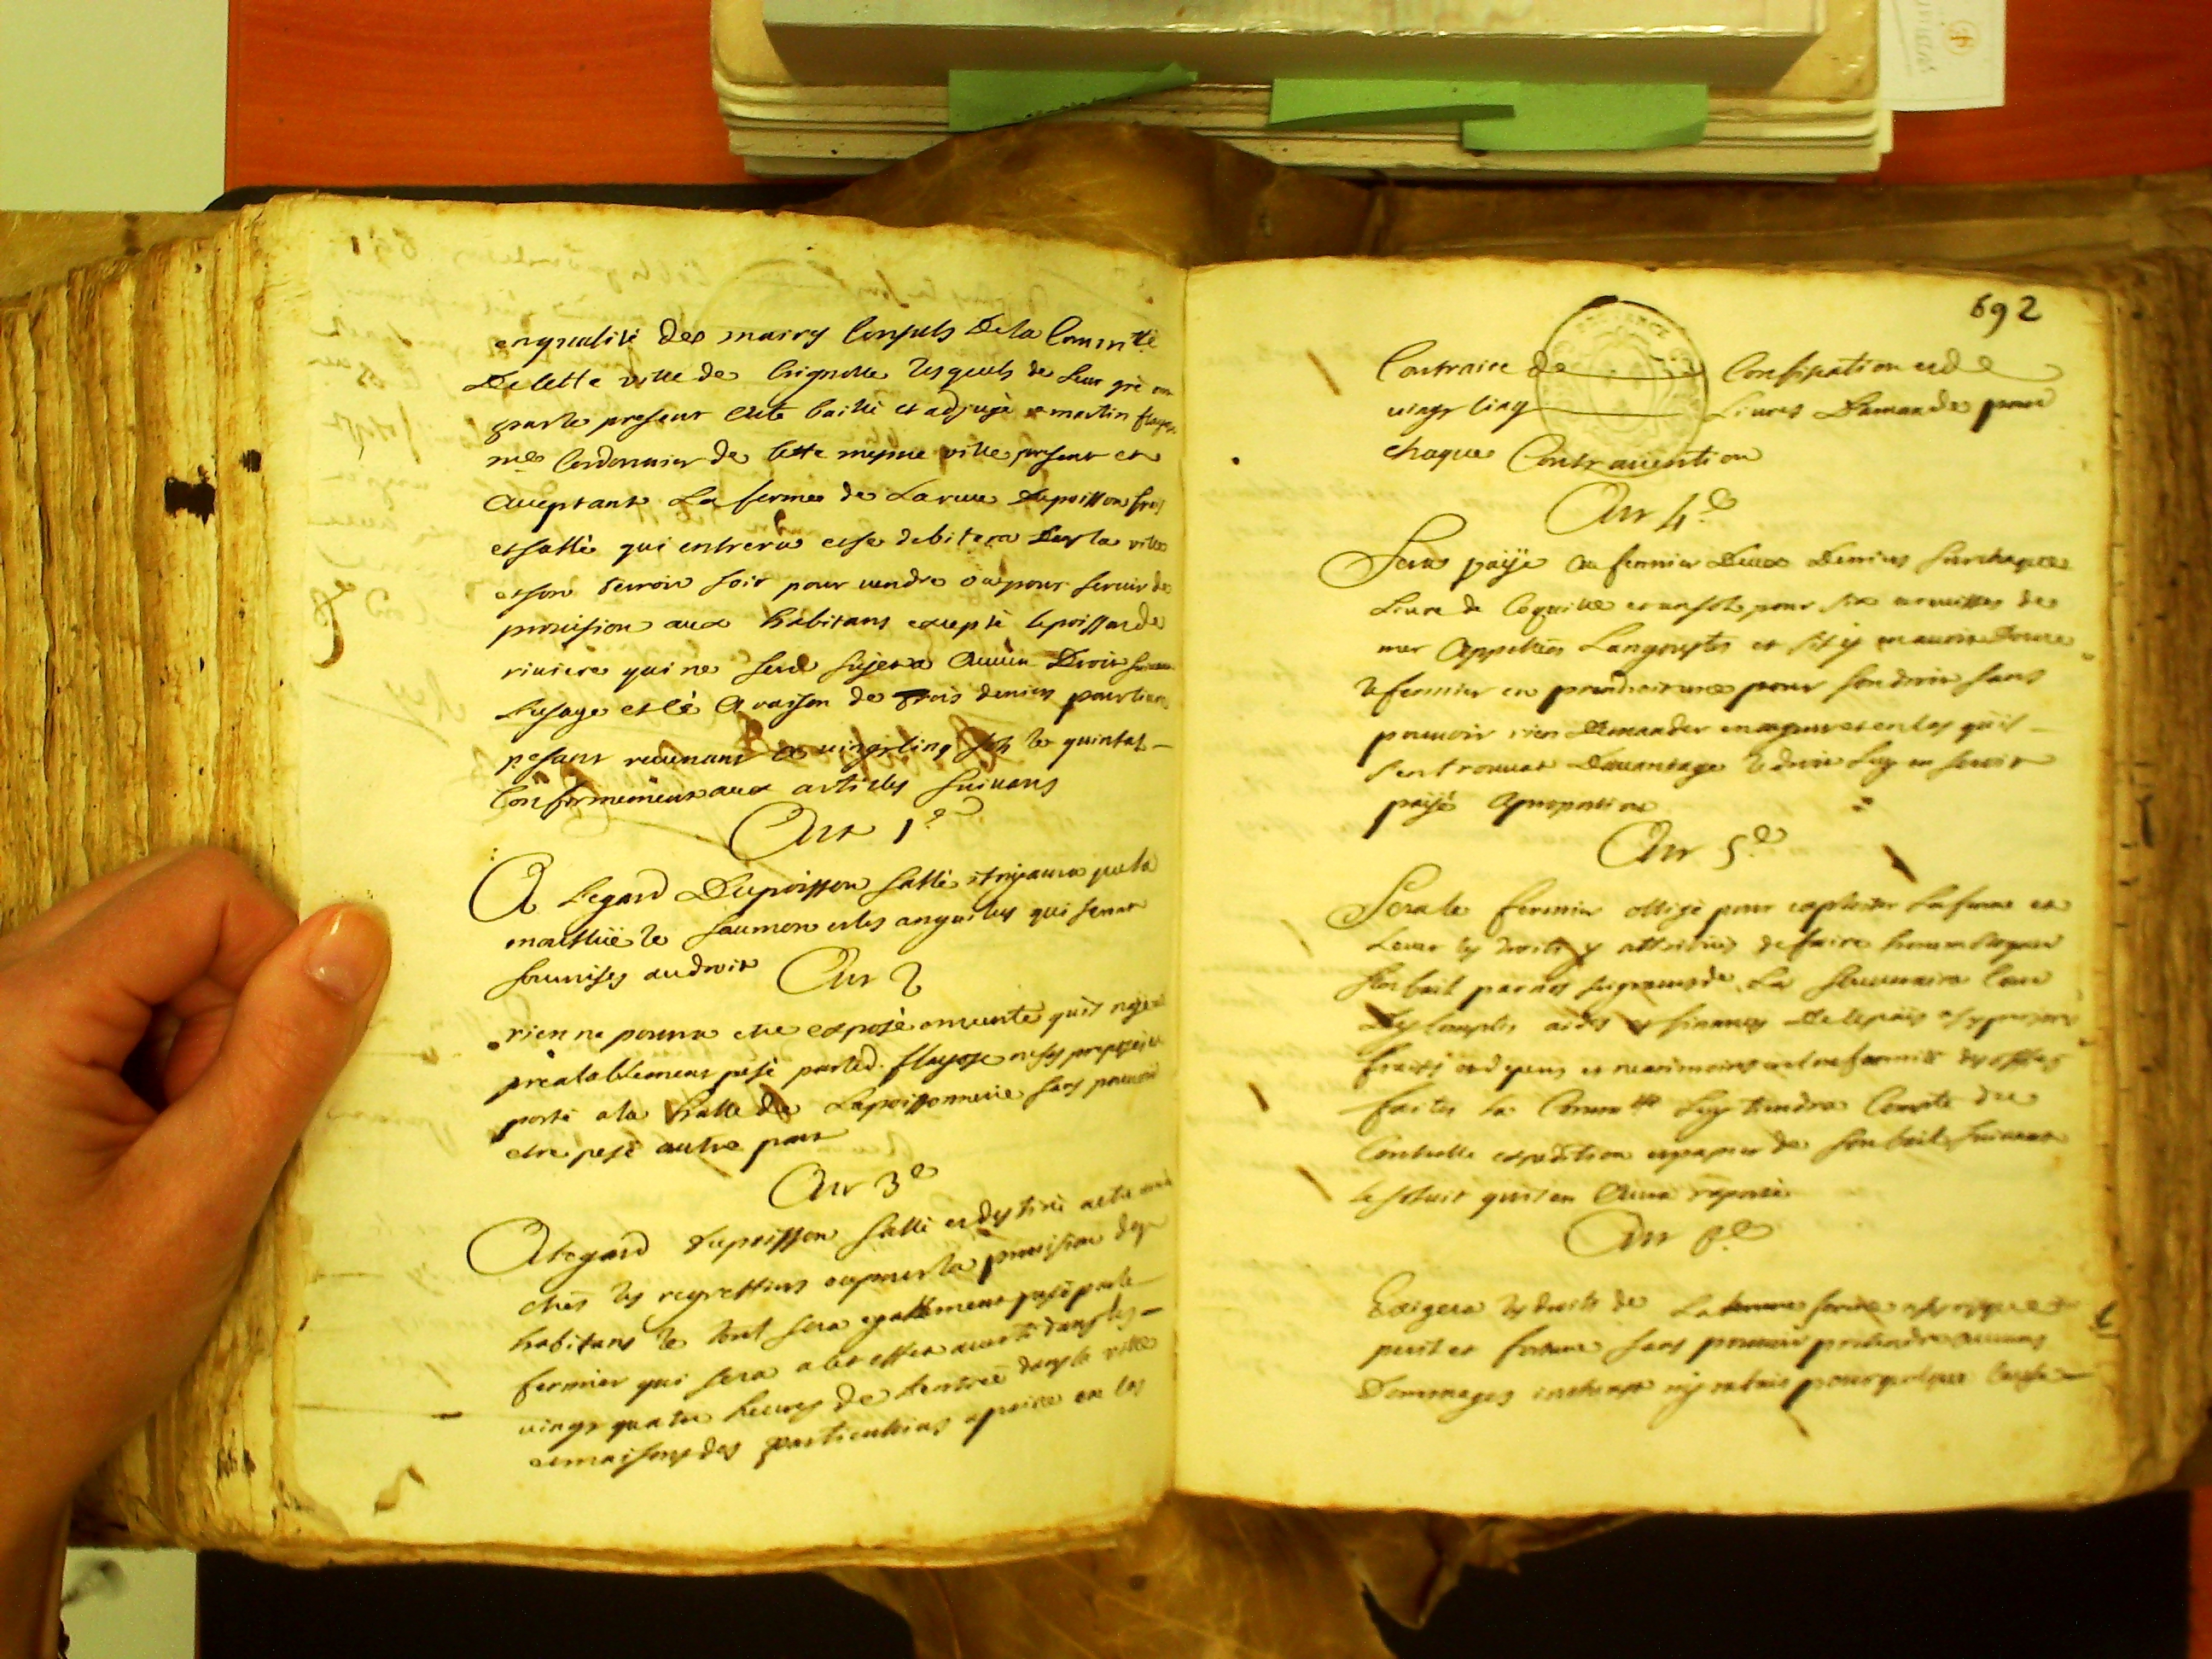 enqualité des mairs Consuls De la Commté
De cette ville de Brignolle lesquels de leur gré ont
par le present acte baillé et adjugé a martin flayosc
me Cordonnier de cette mesme ville present et
acceptant La ferme de La reve Dupoisson frais
et sallé qui entrera et se debitera Dans la ville
et son terroir soit pour vendre ou pour servir de
provision aux habitans excepté le poisson de
riviere qui ne sera sujet a aucun Droit suivant
Lusage et ce a raison de Trois deniers pour livre
pesant revenant a vingt cinq sols le quintal
Conformement aux articles suivans
Art 1e
A Legard Dupoisson sallé il ny aura que la
moullüe le saumon et les anguilles qui seront
soumises au droit
Art 2
rien ne pourra etre exposé en vente quil naye eté
prealablement pesé par led. flayosc ou ses preposés et
porté a la halle de Lapoissonnerie sans pouvoir
etre pesé autre part
Art 3e
A legard Dupoisson sallé et destiné a etre
chés les regrettiers ou pour la provision des
habitans le tout sera egallement pesé par le
fermier qui sera a cet effet averti dans les
vingt quatre heures de Lentrée dans la ville
et maisons des particuliers a peine en cas
692
Contraire de Confiscation et de
vingt cinq Livres Damande pour
chaque Contravention
Art 4e
Sera payé au fermier Deux Deniers sur chaque
Livre de Coquille et un sol pour six ecrevisses de
mer Appellées Langoustes et sil y en avoit Douze
le fermier en prendroit une pour son droit sans
pouvoir rien Demander en argent et en cas quil
sen trouvat Davantage le droit luy en seroit
payé a proportion
Art 5e
Sera le fermier obligé pour exploiter La ferme et
Lever les droits y attribués de faire hommologuer
son bail par nos seigneurs de La Souveraine Cour
Des Comptes aides et finances De ce païs a ses propres
fraits et depens et neanmoins
faites la Commté luy tiendra Compte du
Controlle expedition et papier de son bail suivant
le solvit quil en aura raporté
Art 6e
Exigera les droits de La ferme
peril et fortune sans pouvoir pretendre aucuns
Dommages interets ny rabais pour quelque cause